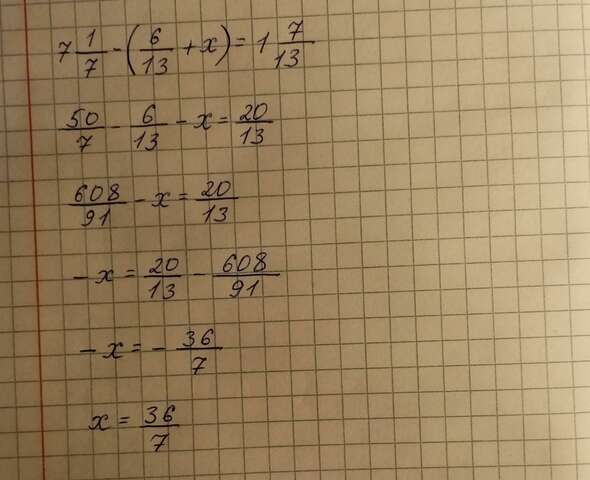 7 1/7 - (6/13 + x) = 1 7/13
50/7 - 6/13 - x = 20/13
608/91 - x = 20/13
- x = 20/13 - 608/91
- x = - 36/7
x = 36/7